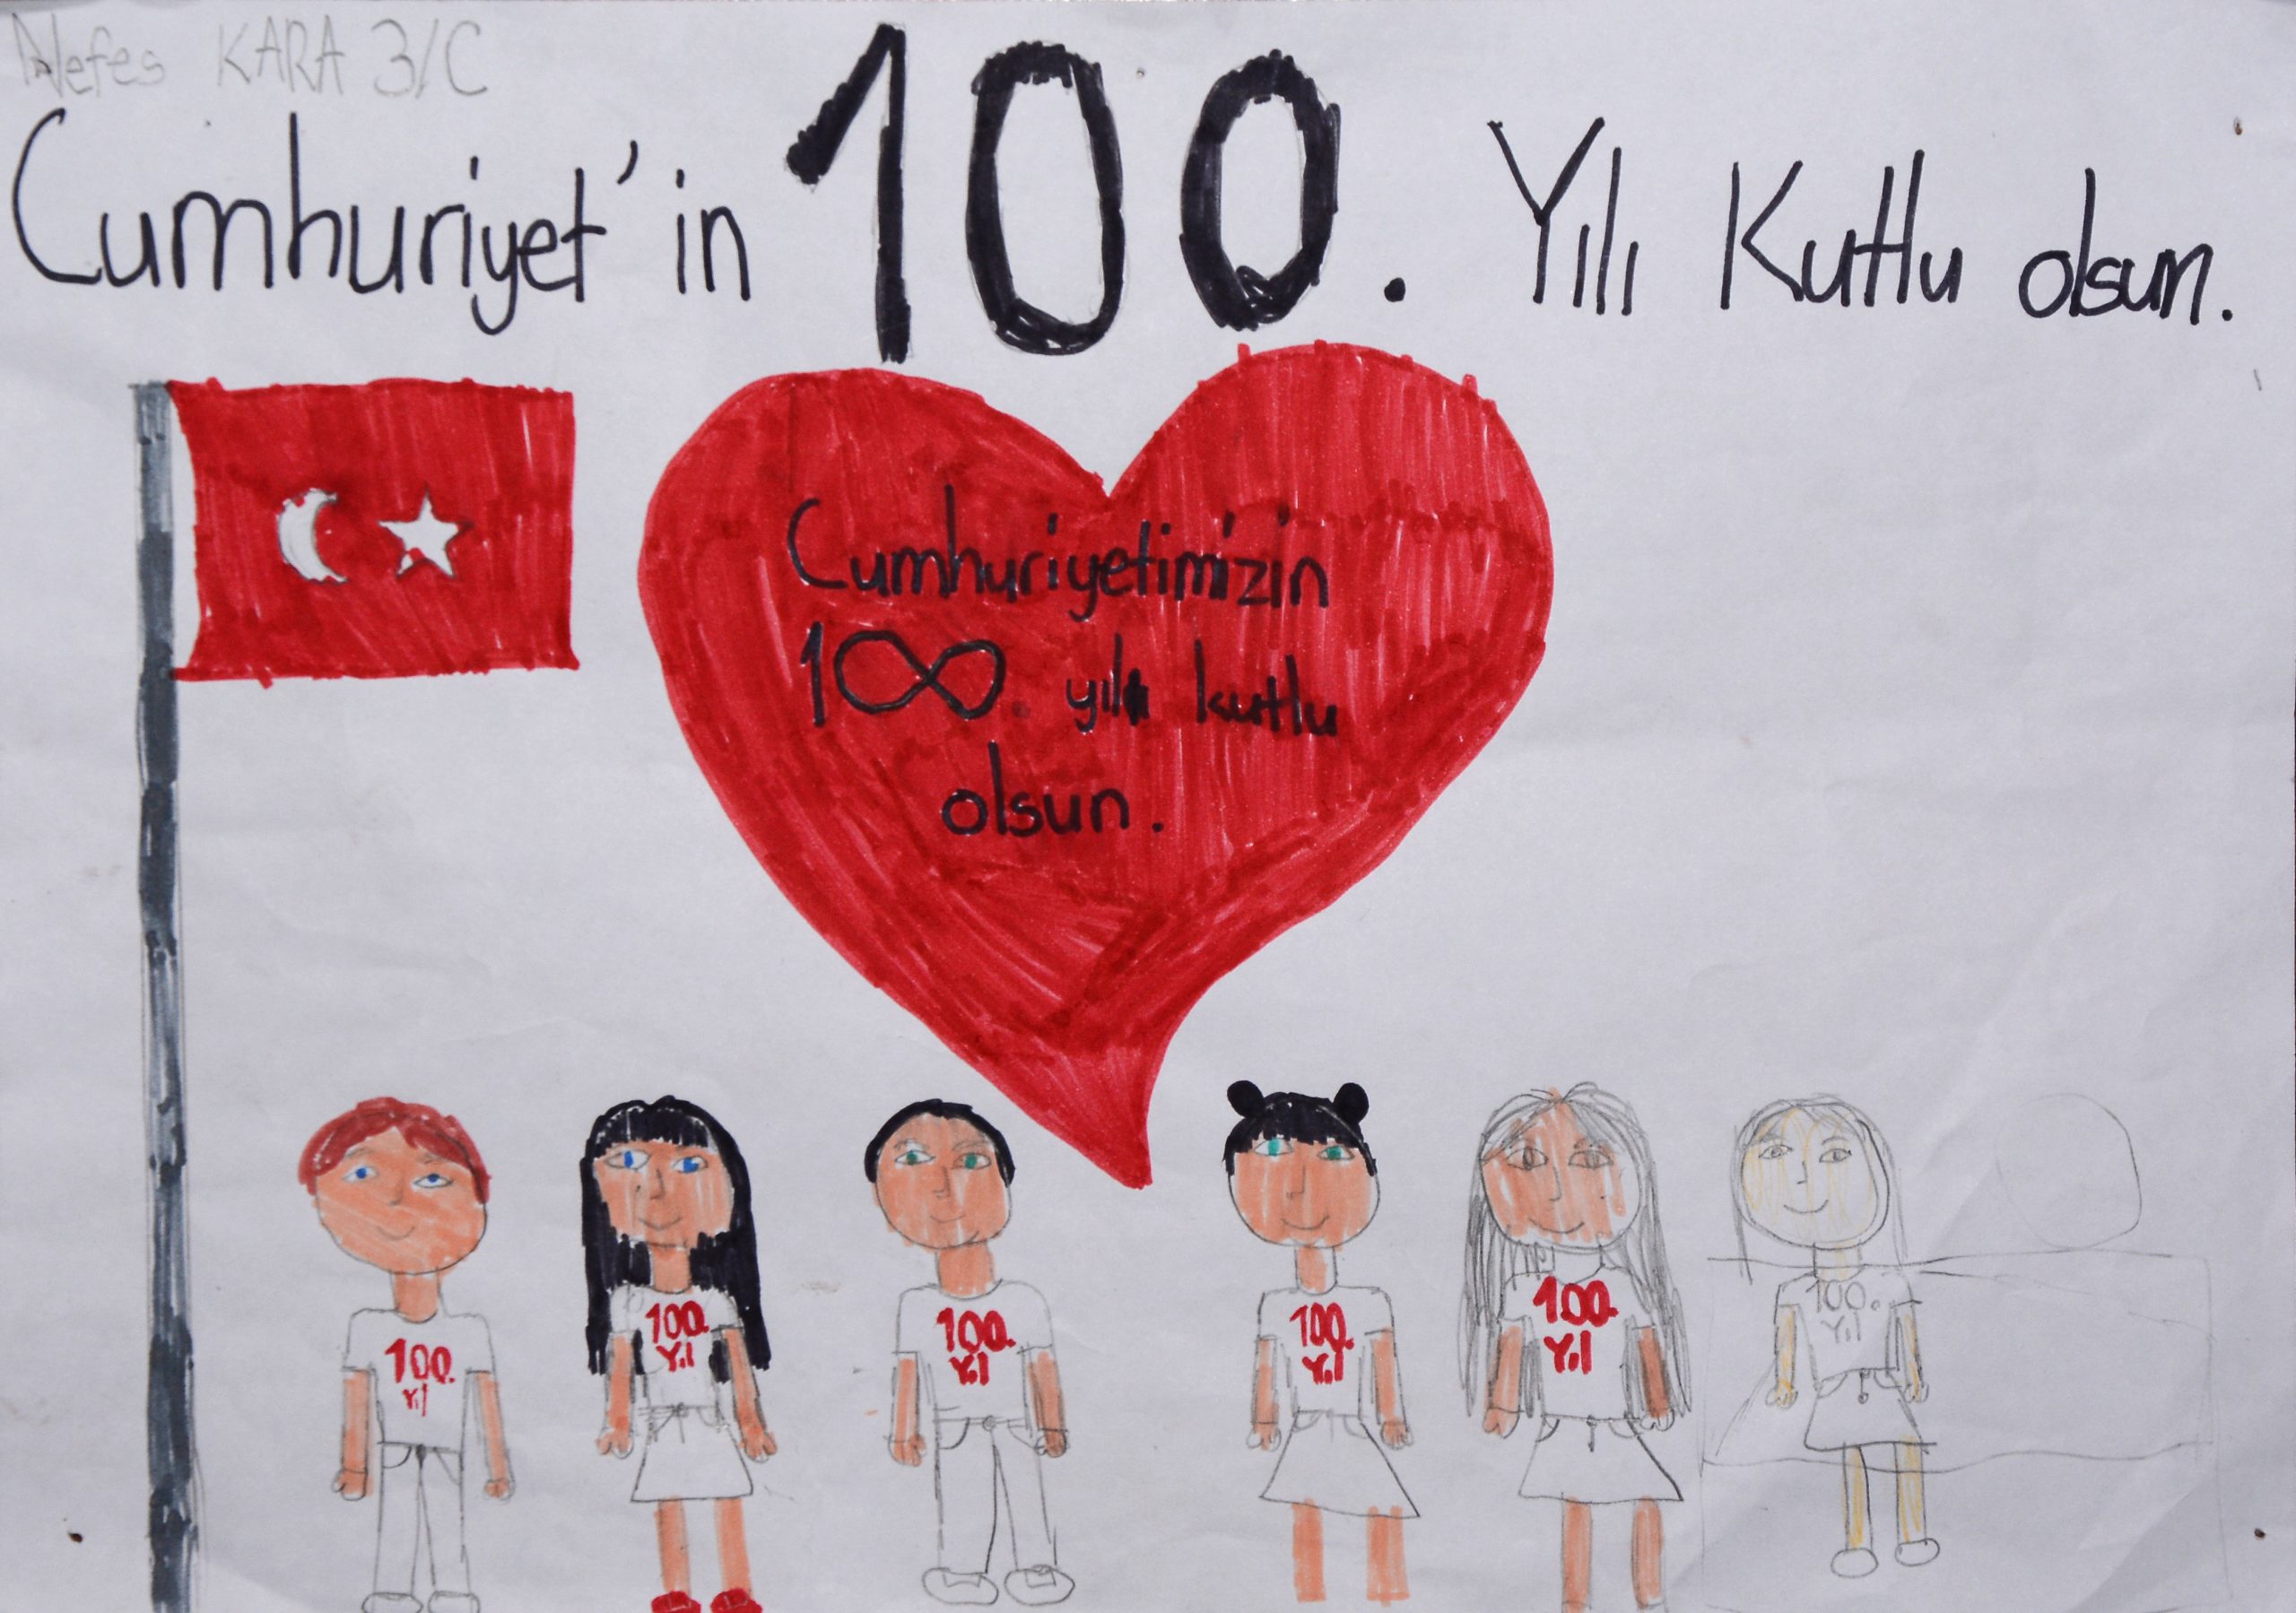 Nefes KARA 3/C
Cumhuriyet'in 100. Yılı Kutlu olsun.
Cumhuriyetimizin
100. yılı kutlu
olsun.
100.
Yıl
100.
Yıl
100.
Yıl
100.
Yıl
100.
Yıl
100.
Yıl